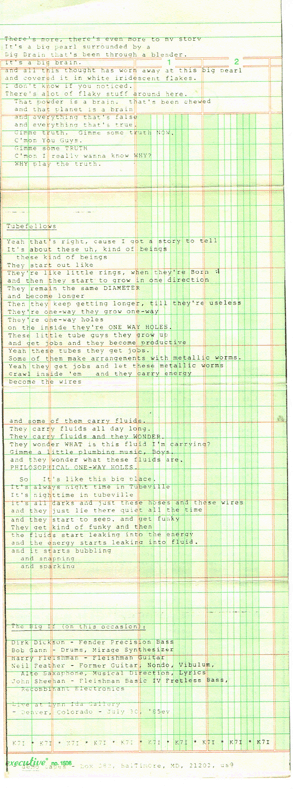 There's more, there's even more to my story
It's a big pearl surrounded by a
Big Brain that's been through a blender.
it's a big brain. 1 2
and all this thought has worn away at this big pearl
and covered it in white iridescent flakes.
I don't know if you noticed.
There's alot of flaky stuff around here.
That powder is a brain. that's been chewed
and that planet is a brain
and everything that's false
and everything that's true.
Gimme truth. Gimme some truth NOW.
C'mon You Guys.
Gimme some TRUTH
C'mon I really wanna know WHY?
WHY play the truth.
Tubefollows
Yeah that's right, cause I got a story to tell
It's about these uh, kind of beings
these kind of beings
They start out like
They're like little rings, when they're Born
and then they start to grow in one direction
They remain the same DIAMETER
and become longer
Then they keep getting longer, till they're useless
They're one-way they grow one-way
They're one-way holes
on the inside they're ONE WAY HOLES.
These little tube guys they grow up
and get jobs and they become productive
Yeah these tubes they get jobs.
Some of them make arrangements with metallic worms.
Yeah they get jobs and let these metallic worms
crawl inside 'em and they carry energy
become the wires
and some of them carry fluids.
They carry fluids all day long.
They carry fluids and they WONDER.
They wonder WHAT is this fluid I'm carrying?
Gimme a little plumbing music, Boys.
and they wonder what these fluids are.
PHILOSOPHICAL ONE-WAY HOLES.
So It's like this big place.
It's always night time in Tubeville
It's nighttime in tubeville
it's all darks and just these hoses and these wires
and they just lie there quiet all the time
and they start to seep, and get funky
They get kind of funky and then
the fluids start leaking into the energy
and the energy starts leaking into fluid.
and it starts bubbling
and snapping
and sparking
The Big If (on this occasion):
Dirk Dickson - Fender Precision Bass
Bob Gann - Drums, Mirage Synthesizer
Harry Fleishman - Fleishman Guitar
Neil Feather - Former Guitar, Nondo, Vibulum,
Alto Saxophone, Musical Direction, Lyrics
John Sheehan - Fleishman Basic IV Fretless Bass,
Recombinant Electronics
Live at Lynn Ida Gallery
- Denver, Colorado - July
K7I * K7I * K7I * K7I * K7I * K7I * K7I * K7I
executive no.
Baltimore, MD. 21203,